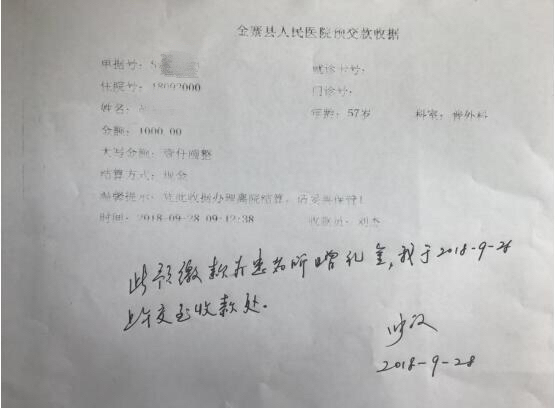 金寨县人民医院预交款收据
单据号：
就诊卡号：
住院号：18092000
门诊号：
姓名：
年龄：57岁
科室：普外科
金额：1000.00
大写金额：壹仟圆整
结算方式：现金
温馨提示：凭此收据办理离院结算，请妥善保管！
时间：2018-09-28 09:12:38
收款员：刘杰
此预缴款为患者所赠礼金，我于2018-9-28
上午交到收款处。
2018-9-28